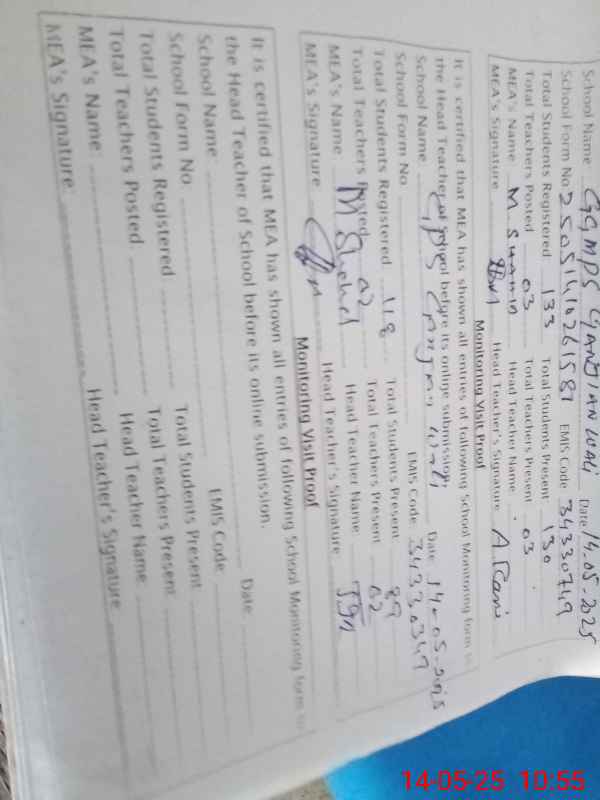 School Name GGMPS GANJIAN WALI Date 14-05-2025
School Form No 2505141026158 EMIS Code 34330749
Total Students Registered 133 Total Students Present 130
Total Teachers Posted 03 Total Teachers Present 03
MEA's Name M Head Teacher Name
MEA's Signature Head Teacher's Signature A. Rani
Monitoring Visit Proof
It is certified that MEA has shown all entries of following School Monitoring form to
the Head Teacher of School before its online submission;
School Name GPS Date 14-05-2025
School Form No EMIS Code 34330347
Total Students Registered 118 Total Students Present 89
Total Teachers Posted 02 Total Teachers Present 02
MEA's Name M Head Teacher Name
MEA's Signature Head Teacher's Signature
Monitoring Visit Proof
It is certified that MEA has shown all entries of following School Monitoring form to
the Head Teacher of School before its online submission.
School Name Date
School Form No EMIS Code
Total Students Registered Total Students Present
Total Teachers Posted Total Teachers Present
MEA's Name: Head Teacher Name
MEA's Signature: Head Teacher's Signature
14-05-25 10:55